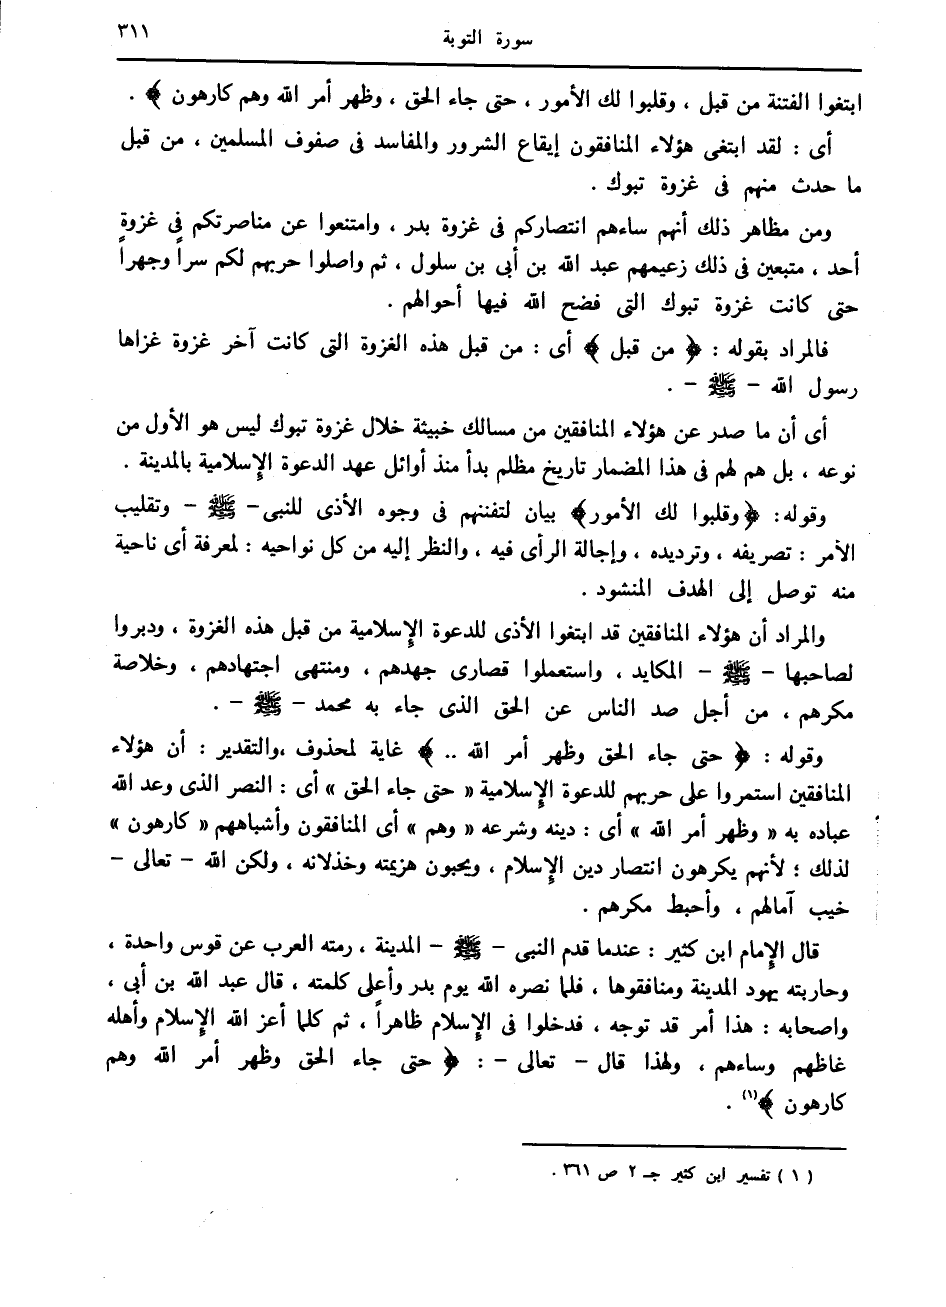 سورة التوبة
٣١١
ابتغوا الفتنة من قبل ، وقلبوا لك الأمور ، حتى جاء الحق ، وظهر أمر الله وهم كارهون ﴾ .
أى : لقد ابتغى هؤلاء المنافقون إيقاع الشرور والمفاسد فى صفوف المسلمين ، من قبل
ما حدث منهم فى غزوة تبوك .
ومن مظاهر ذلك أنهم ساءهم انتصاركم فى غزوة بدر ، وامتنعوا عن مناصرتكم فى غزوة
أحد ، متبعين فى ذلك زعيمهم عبد الله بن أبى بن سلول ، ثم واصلوا حربهم لكم سراً وجهراً
حتى كانت غزوة تبوك التى فضح الله فيها أحوالهم .
فالمراد بقوله : ﴿ من قبل ﴾ أى : من قبل هذه الغزوة التى كانت آخر غزوة غزاها
رسول الله – ﷺ – .
أى أن ما صدر عن هؤلاء المنافقين من مسالك خبيثة خلال غزوة تبوك ليس هو الأول من
نوعه ، بل هم لهم فى هذا المضمار تاريخ مظلم بدأ منذ أوائل عهد الدعوة الإسلامية بالمدينة .
وقوله: ﴿وقلبوا لك الأمور﴾ بيان لتفننهم فى وجوه الأذى للنبى– ﷺ – وتقليب
الأمر : تصريفه ، وترديده ، وإجالة الرأى فيه ، والنظر إليه من كل نواحيه : لمعرفة أى ناحية
منه توصل إلى الهدف المنشود .
والمراد أن هؤلاء المنافقين قد ابتغوا الأذى للدعوة الإسلامية من قبل هذه الغزوة ، ودبروا
لصاحبها – ﷺ – المكايد ، واستعملوا قصارى جهدهم ، ومنتهى اجتهادهم ، وخلاصة
مكرهم ، من أجل صد الناس عن الحق الذى جاء به محمد – ﷺ – .
وقوله : ﴿ حتى جاء الحق وظهر أمر الله .. ﴾ غاية لمحذوف ،والتقدير : أن هؤلاء
المنافقين استمروا على حربهم للدعوة الإسلامية « حتى جاء الحق » أى : النصر الذى وعد الله
عباده به « وظهر أمر الله » أى : دينه وشرعه « وهم » أى المنافقون وأشباههم « كارهون »
لذلك ؛ لأنهم يكرهون انتصار دين الإسلام ، ويحبون هزيمته وخذلانه ، ولكن الله – تعالى –
خيب آمالهم ، وأحبط مكرهم .
قال الإمام ابن كثير : عندما قدم النبى – ﷺ – المدينة ، رمته العرب عن قوس واحدة ،
وحاربته يهود المدينة ومنافقوها ، فلما نصره الله يوم بدر وأعلى كلمته ، قال عبد الله بن أبى ،
واصحابه : هذا أمر قد توجه ، فدخلوا فى الإسلام ظاهراً ، ثم كلما أعز الله الإسلام وأهله
غاظهم وساءهم ، ولهذا قال – تعالى – : ﴿ حتى جاء الحق وظهر أمر الله وهم
كارهون ﴾(١) .
( ١ ) تفسير ابن كثير جـ ٢ ص ٣٦١ .